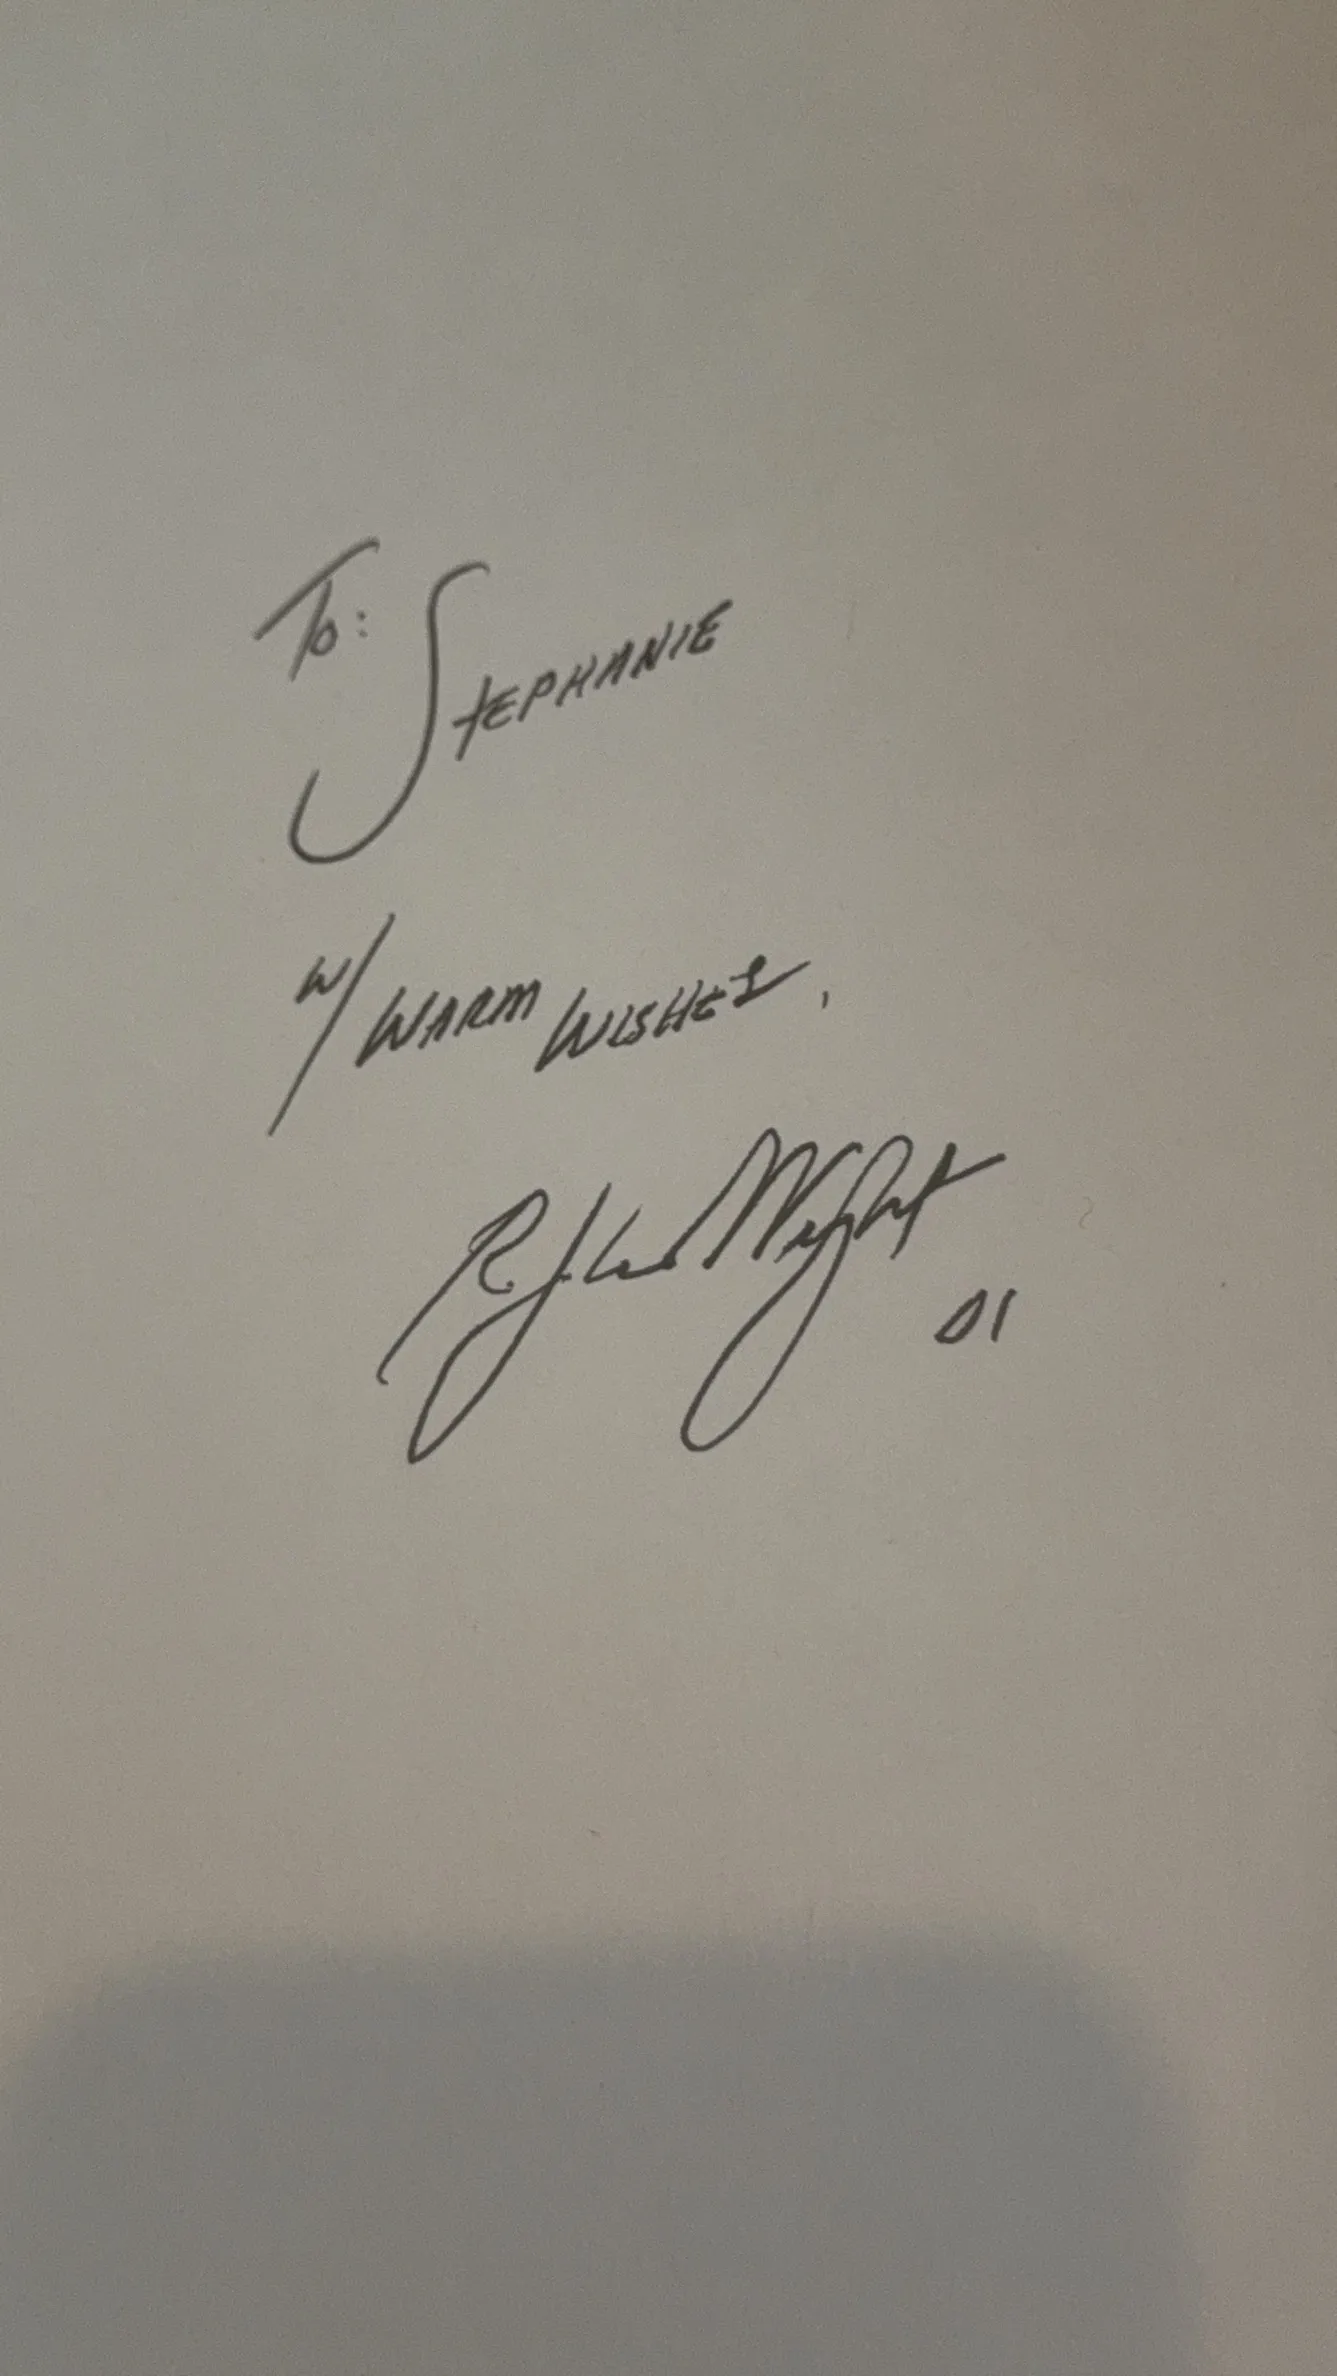 To: STEPHANIE
W/ WARM WISHES,
Wright
01